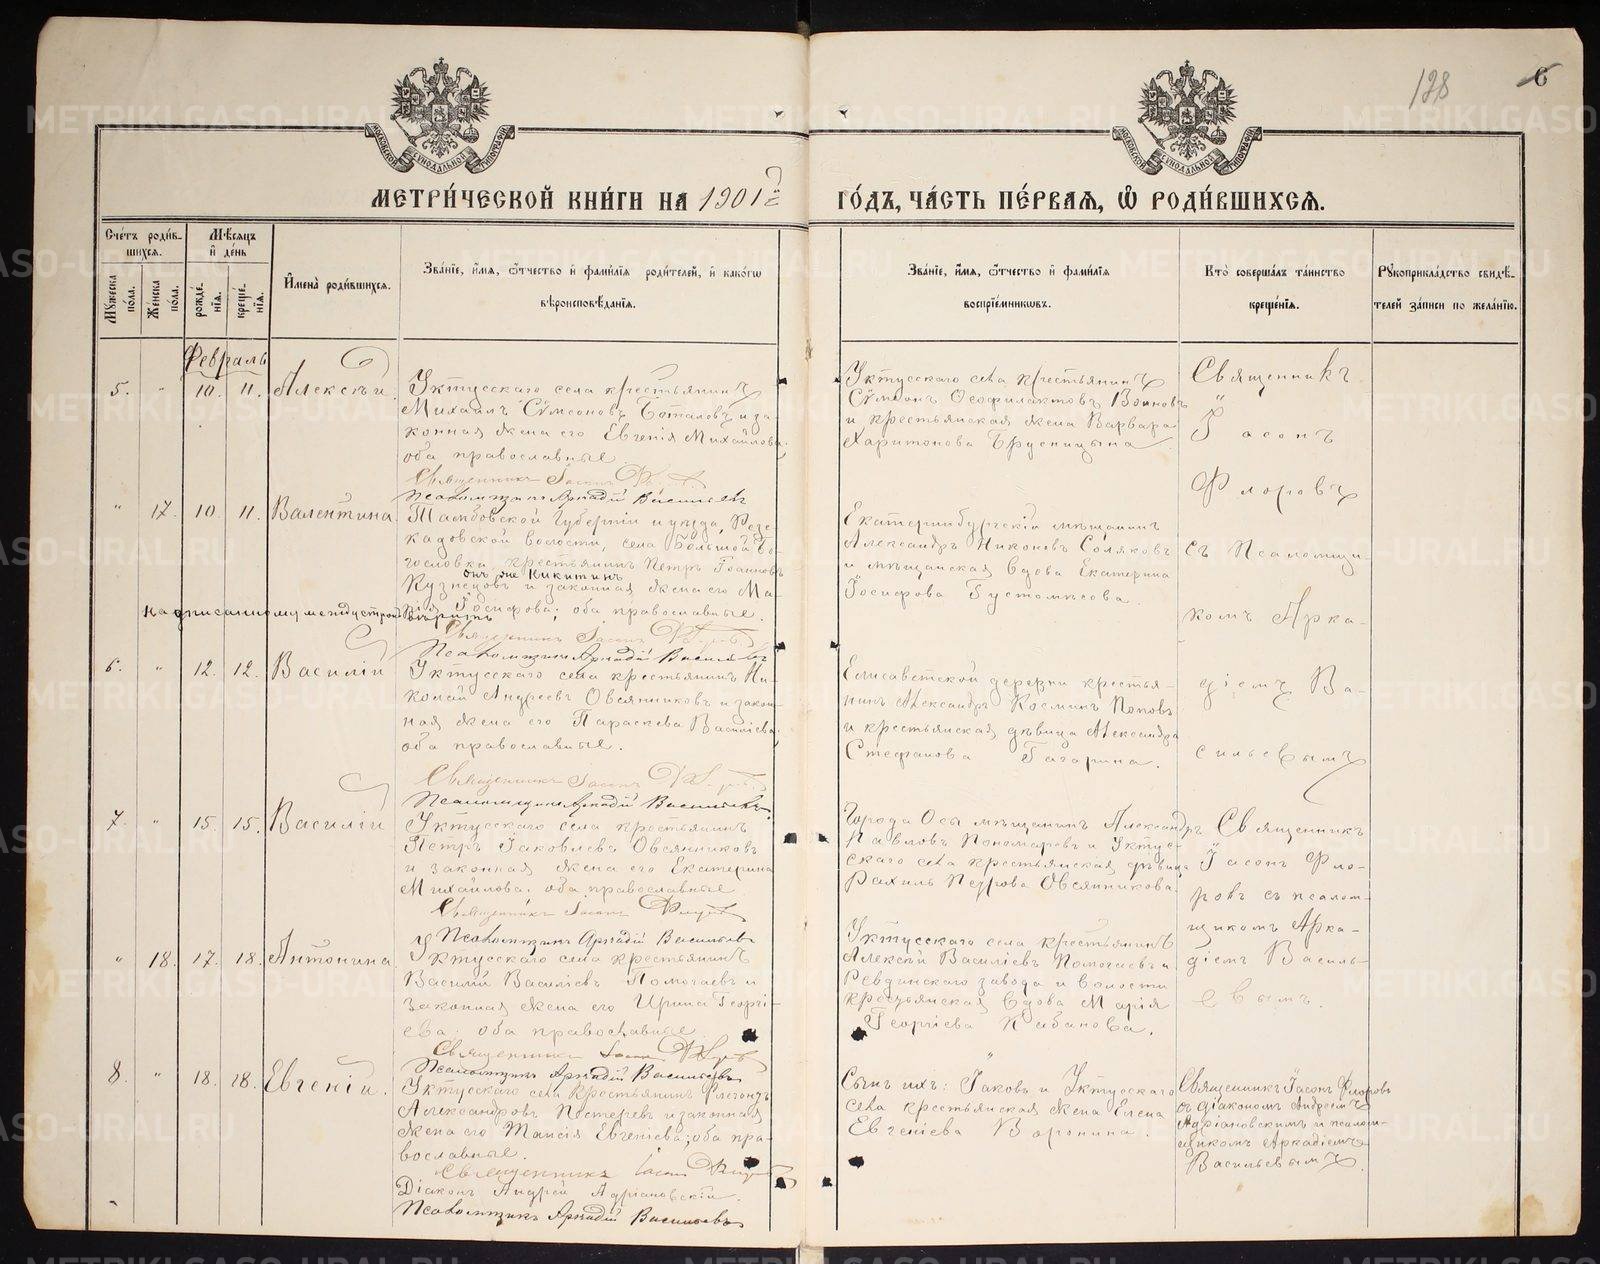 128
6
МЕТРИ́ЧЕСКОЙ КНИ́ГИ НА 1901й ГО́ДЪ, ЧА́СТЬ ПЕ́РВАЯ, Ѽ РОДИ́ВШИХСЯ.
Счéтъ роди́в-
шихся.
Мꙋ́жеска пóла.
Жéнска пóла.
Мѣ́сяцъ
и дéнь
рождé-
нїя.
крещé-
нїя.
Именà роди́вшихся.
Звáнїе, и́мя, ѻ́тчество и фами́лїя роди́телей, и какóгѡ
вѣроисповѣ́данїя.
Звáнїе, и́мя, ѻ́тчество и фами́лїя
воспрїéмникѡвъ.
Ктò совершáлъ тáинство
крещéнїя.
Рꙋкоприклáдство свидѣ́-
телей зáписи по желáнїю.
Февраль
5. " 10. 11. Алексѣй.
Уктусскаго села крестьянинъ
Михаилъ Сѵмеоновъ Боталовъ и за-
конная жена его Евгенія Михайлова;
оба православные
Священникъ Іасонъ Флоровъ
Псаломщикъ Аркадій Васильевъ
Уктусскаго села крестьянинъ
Сѵмеонъ Ѳеофилактовъ Воиновъ
и крестьянская жена Варвара
Харитонова Брусницына
Священникъ
Іасонъ
Флоровъ
" 17. 10. 11. Валентина
Тамбовской Губерніи и уѣзда,
волости, села Большой Бо-
гословка, крестьянинъ Петръ Іоанновъ
онъ же Никитинъ
Кузнецовъ и законная жена его Ма-
рія Іосифова; оба православные.
Надписанному между строкъ вѣрить
Священникъ Іасонъ Флоровъ
Псаломщикъ Аркадій Васильевъ
Екатеринбургскій мѣщанинъ
Александръ Никоновъ Соляковъ
и мѣщанская вдова Екатерина
Іосифова Густомѣсова.
съ Псаломщи-
комъ Арка-
6. " 12. 12. Василій
Уктусскаго села крестьянинъ Ни-
колай Андреевъ Овсянниковъ и закон-
ная жена его Параскева Васильева;
оба православные.
Священникъ Іасонъ Флоровъ
Псаломщикъ Аркадій Васильевъ
Елисаветской деревни крестья-
нинъ Александръ Косминъ Поповъ
и крестьянская дѣвица Александра
Стефанова Гагарина.
діемъ Ва-
сильевымъ
7. " 15. 15. Василій
Уктусскаго села крестьянинъ
Петръ Іаковлевъ Овсянниковъ
и законная жена его Екатерина
Михайлова; оба православные
Священникъ Іасонъ Флоровъ
Псаломщикъ Аркадій Васильевъ
Города Осы мѣщанинъ Александръ
Павловъ Пономаревъ и Уктус-
скаго села крестьянская дѣвица
Рахиль Петрова Овсянникова
Священникъ
Іасонъ Фло-
ровъ съ псалом-
щикомъ Арка-
діемъ Василь-
евымъ.
" 18. 17. 18. Антонина
Уктусскаго села крестьянинъ
Василій Василіевъ Помогаевъ и
законная жена его Ирина Георгі-
ева; оба православные
Священникъ Іасонъ Флоровъ
Псаломщикъ Аркадій Васильевъ
Уктусскаго села крестьянинъ
Алексѣй Василіевъ Помогаевъ и
Ревдинскаго завода и волости
крестьянская вдова Марія
Георгіева Кабанова.
8. " 18. 18. Евгеній.
Уктусскаго села крестьянинъ Флегонтъ
Александровъ Пестеревъ и законная
жена его Таисія Евгеніева; оба пра-
вославные.
Священникъ Іасонъ Флоровъ
Діаконъ Андрей Адріановскій.
Псаломщикъ Аркадій Васильевъ
Сынъ ихъ: Іаковъ и Уктусскаго
села крестьянская жена Елена
Евгеніева Воронина.
Священникъ Іасонъ Флоровъ
съ діакономъ Андреемъ
Адріановскимъ и псалом-
щикомъ Аркадіемъ
Васильевымъ.